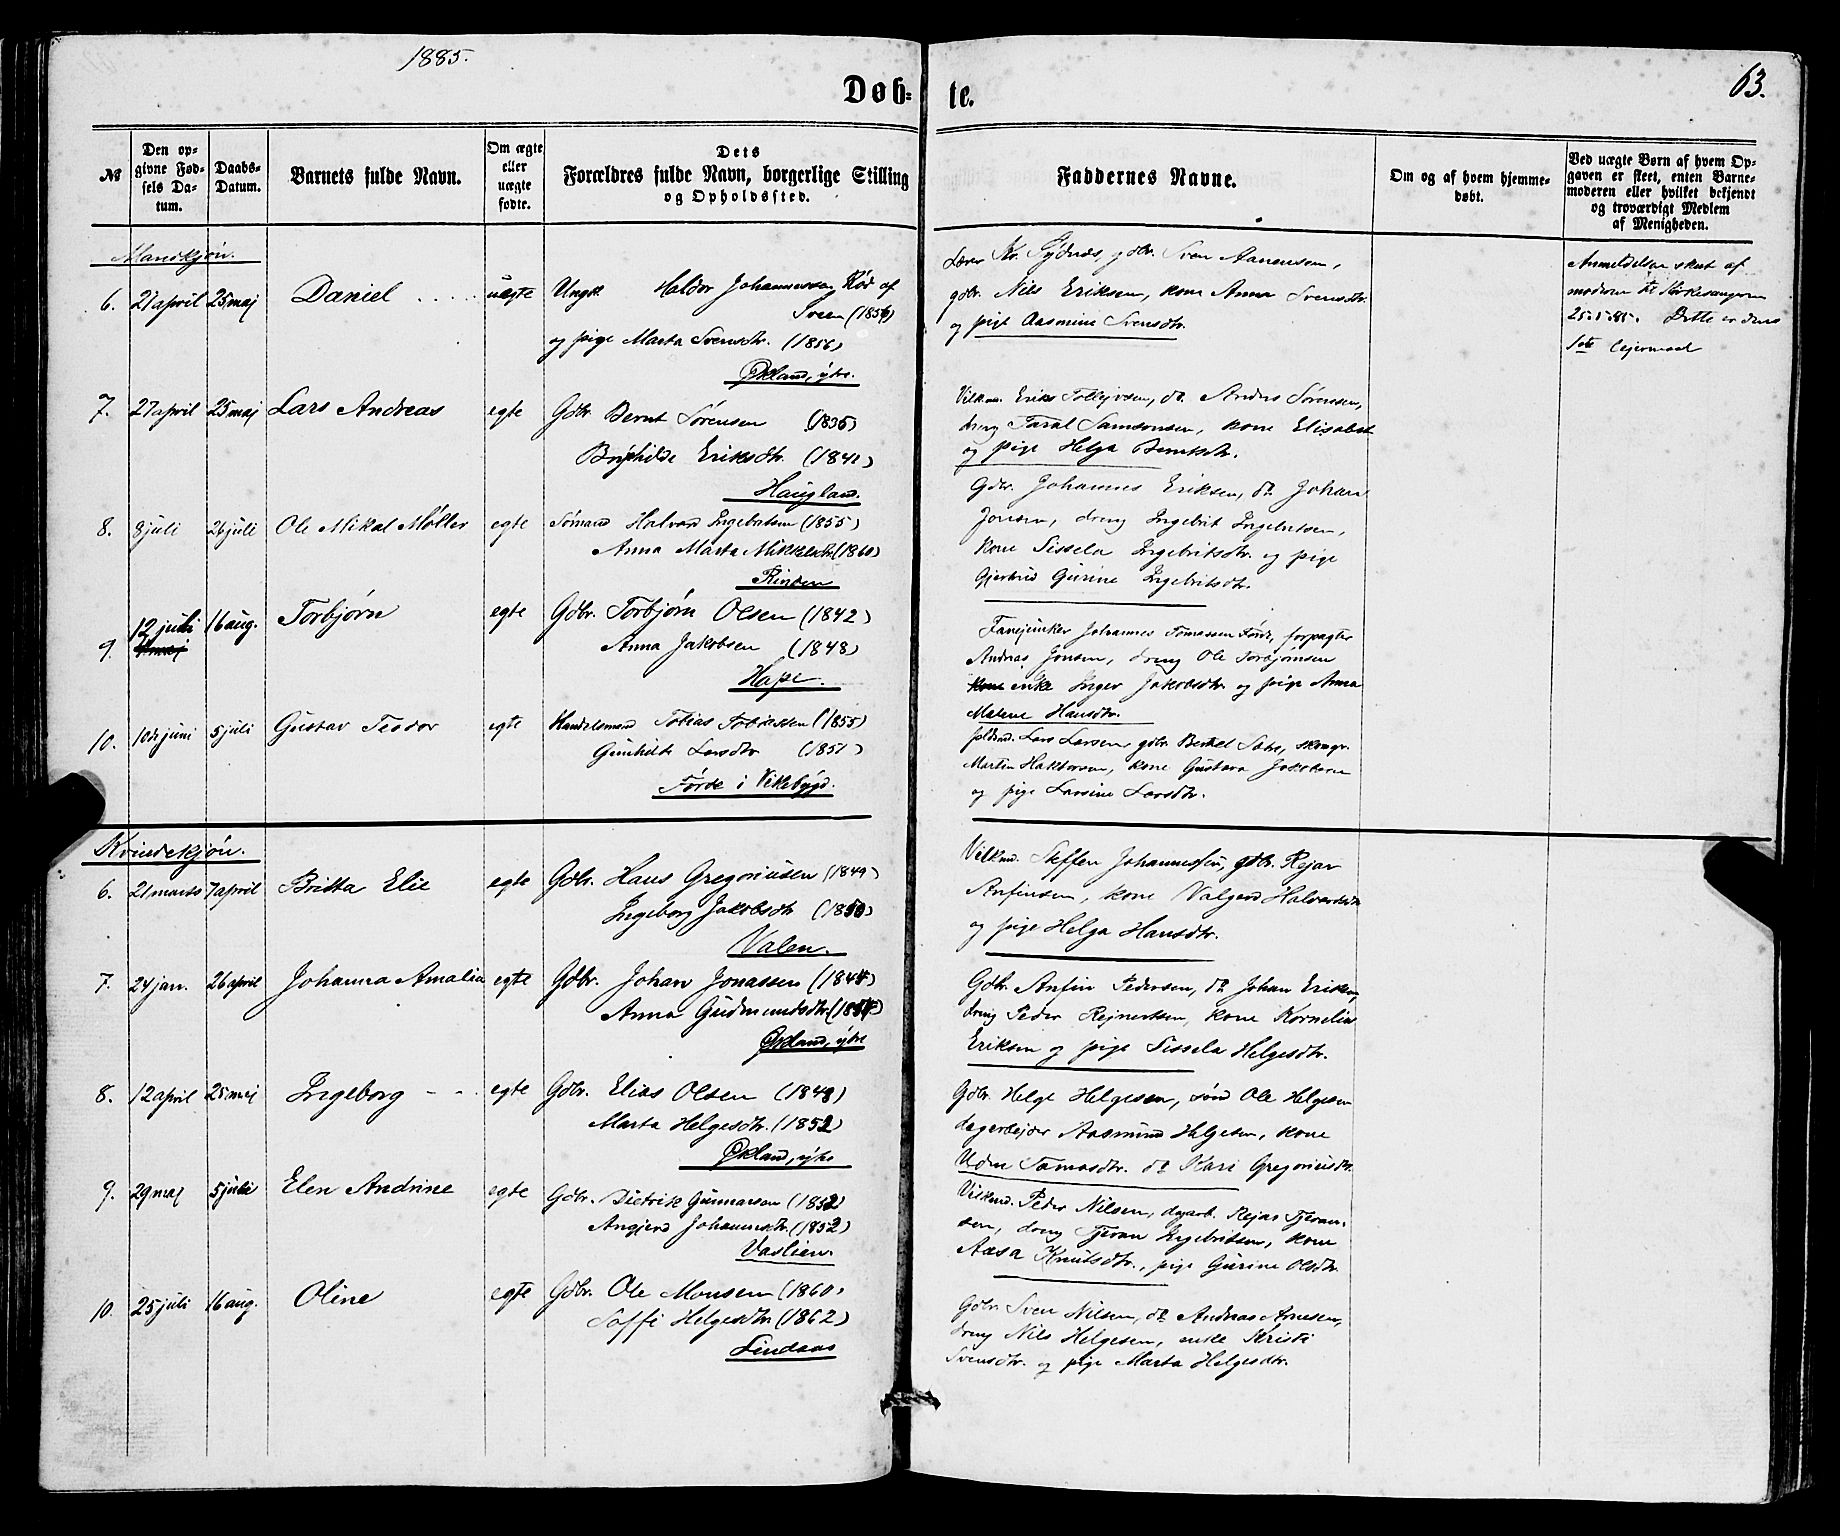 1885.
Døb-
te.
63.
№
Den op-
givne Fød-
sels Da-
tum.
Daabs-
Datum.
Barnets fulde Navn.
Om ægte
eller
uægte
fødte.
Dets
Forældres fulde Navn, borgerlige Stilling
og Opholdssted.
Faddernes Navne.
Om og af hvem hjemme-
døbt.
Ved uægte Børn af hvem Op-
gaven er skeet, enten Barne-
moderen eller hvilket bekjendt
og troværdigt Medlem
af Menigheden.
Mandkjøn.
6. 21 april 25 maj Daniel uægte Ungk. Haldor Johannessen af
Sveen (1856)
og pige Marta Svensdtr. (1856)
Økland, ytre.
Lærer Kr. Sydnes, gdbr. Sven Aanensen,
gdbr. Nils Eriksen, kone Anna Svensdtr.
og pige Aasmine Svensdtr.
Anmeldelse skeet af
moderen til Kirkesangeren
25-5-85. Dette er dens
1ste lejermaal
7. 27 april 25 maj Lars Andreas egte Gdbr. Bernt Sørensen (1835)
Eriksdtr. (1841)
Haugland.
Vilkm. Erik, do. Anders Sørensen,
dreng Taral Samsonsen, kone Elisabet
og pige Helga Berntsdtr.
8. 8 juli 26 juli Ole Mikal Møller egte Sømand Halvard Ingebretsen (1855)
Anna Marta Mikkelsdtr. (1860)
Rinden
Gdbr. Johannes Eriksen, do. Johan
Jonsen, dreng Ingebrit Ingebritsen,
kone Sissela Ingebritsdtr. og pige
Gjertrud Gurine Ingebritsdtr.
9. 12 juli 16 aug. Torbjørn egte Gdbr. Torbjørn Olsen (1842)
Anna Jakobsen (1848)
Fanejunker Johannes Tomassen, forpagter
Andreas Jonsen, dreng Ole Torbjørnsen
kone enke Inger Jakobsdtr. og pige Anna
Malene Hansdtr.
10. 10de juni 5 juli Gustav Teodor egte Handelsmand Tobias Tobiassen (1855)
Gunhilde Larsdtr. (1851)
Førde i Vikebygd.
Lars Larsen, gdbr.
Martin, kone Gustava Jakobsen
og pige Larsine Larsdtr.
Kvindekjøn.
6. 21 marts 7 april Britta Elie egte Gdbr. Hans Gregoriusen (1849)
Ingeborg Jakobsdtr. (1850)
Valen.
Vilkmd. Steffen Johannessen, gdbr. Rejar
Anfinsen, kone Valgerd Halvardsdtr.
og pige Helga Hansdtr.
7. 24 jan. 26 april Johanna Amalia egte Gdbr. Johan Jonassen (1844)
Anna Gudmundsdtr. (1854)
Økland, ytre
Gdbr. Anfin Pedersen, do. Johan Eriksen,
dreng Peder Rejnertsen, kone Kornelia
Eriksen og pige Sissela Helgesdtr.
8. 12 april 25 maj Ingeborg egte Gdbr. Elias Olsen (1848)
Marta Helgesdtr. (1852)
Økland, ytre
Gdbr. Helge Helgesen, sønd Ole Helgesen
dagarbejder Aasmund Helgesen, kone
Uden Tomasdtr. do. Kari Gregoriusdtr.
9. 29 maj 5 juli Elen Andrine egte Gdbr. Dietrik Gunnarsen (1852)
Angjerd Johannesdtr. (1852)
Vaslien.
Vilkmd. Peder Nilsen, dagarb. Rejar Tjeran-
sen, dreng Tjeran Ingebritsen, kone
Aasa Knutsdtr., pige Gurine Olsdtr.
10. 25 juli 16 aug. Oline egte Gdbr. Ole Monsen (1860)
Soffi Helgesdtr. (1862)
Lindaas
Gdbr. Sven Nilsen, do. Andreas Arnesen,
dreng Nils Helgesen, enke Kristi
Svensdtr. og pige Marta Helgesdtr.